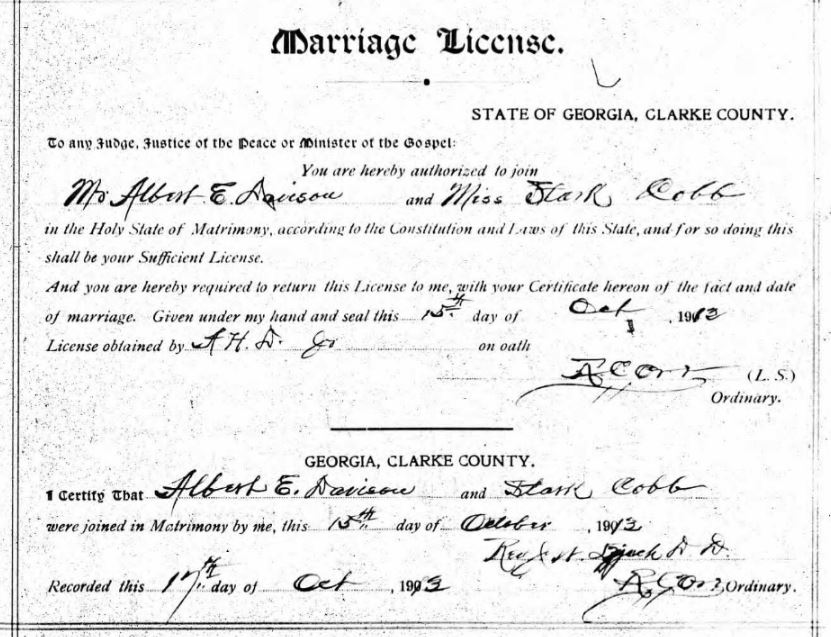 Marriage License.
STATE OF GEORGIA, CLARKE COUNTY.
To any Judge, Justice of the Peace or Minister of the Gospel:
You are hereby authorized to join
Mr Albert E. Davison and Miss Stark Cobb
in the Holy State of Matrimony, according to the Constitution and Laws of this State, and for so doing this
shall be your Sufficient License.
And you are hereby required to return this License to me, with your Certificate hereon of the fact and date
of marriage. Given under my hand and seal this 15th day of Oct, 1913
License obtained by A. H. D. Jr on oath
(L. S.)
Ordinary.
GEORGIA, CLARKE COUNTY.
I Certify That Albert E. Davison and Stark Cobb
were joined in Matrimony by me, this 15th day of October, 1913
Rev D. D.
Recorded this 17th day of Oct, 1913 Ordinary.